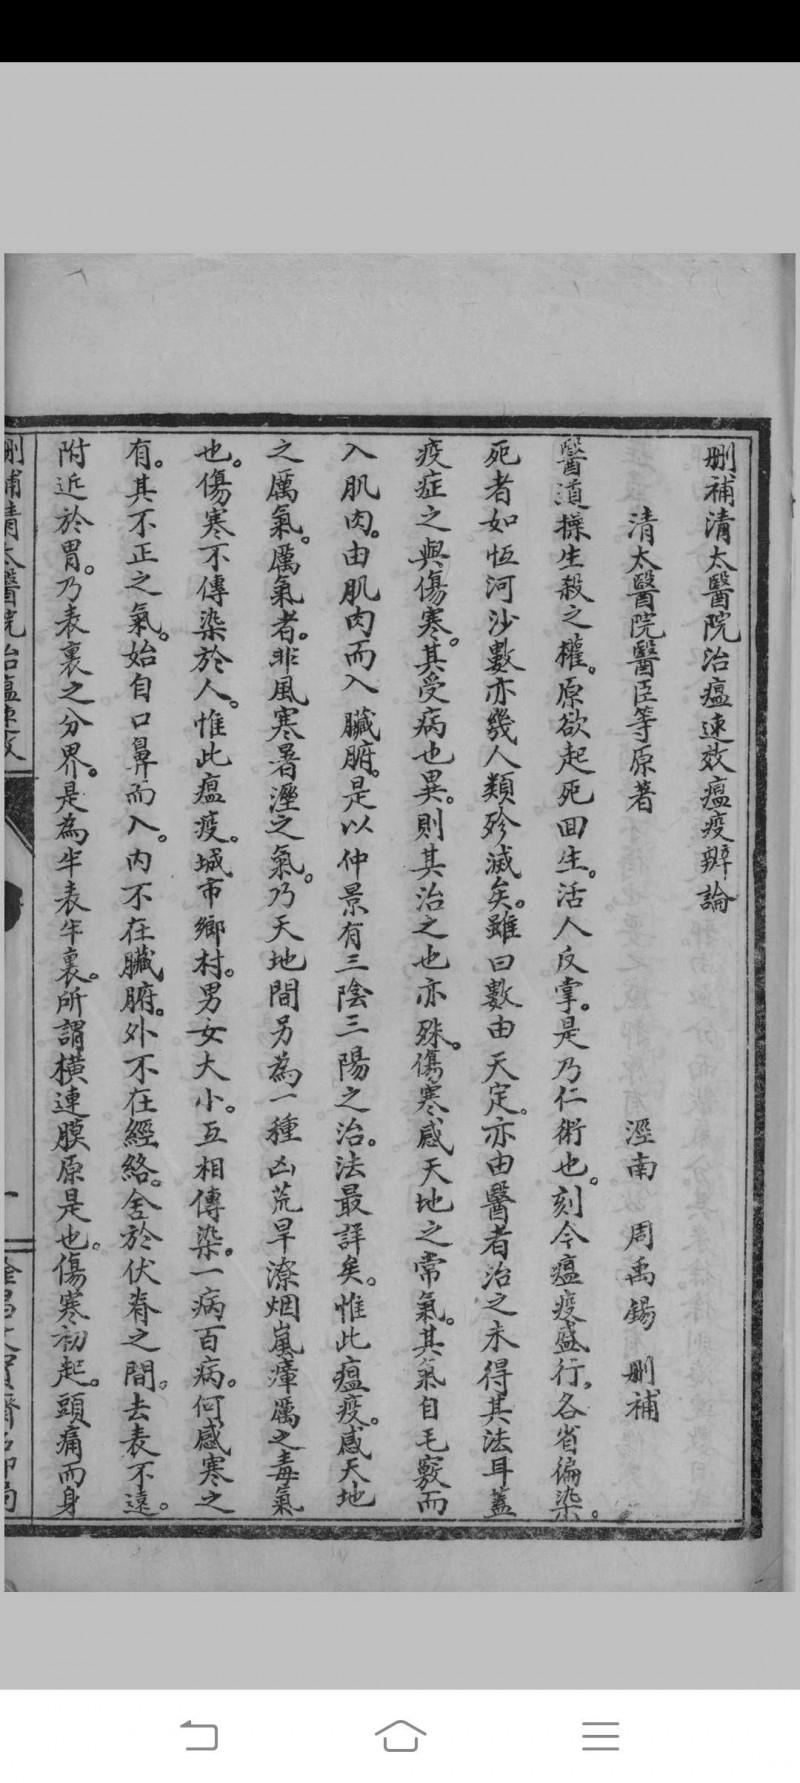 刪補清太醫院治瘟速效瘟疫辨論
清太醫院醫臣等原著　涇南　周禹錫　刪補
醫道操生殺之權。原欲起死回生。活人反掌。是乃仁術也。刻今瘟疫盛行。各省徧染。
死者如恆河沙數亦幾人類殄滅矣。雖曰數由天定。亦由醫者治之未得其法耳蓋
疫症之與傷寒。其受病也異。則其治之也亦殊。傷寒感天地之常氣。其氣自毛竅而
入肌肉。由肌肉而入臟腑。是以仲景有三陰三陽之治。法最詳矣。惟此瘟疫。感天地
之厲氣。厲氣者。非風寒暑溼之氣。乃天地間另為一種凶荒旱潦烟嵐瘴厲之毒氣
也。傷寒不傳染於人。惟此瘟疫。城市鄉村。男女大小。互相傳染。一病百病。何感寒之
有。其不正之氣。始自口鼻而入。內不在臟腑。外不在經絡。舍於伏脊之間。去表不遠。
附近於胃。乃表裏之分界。是為半表半裏。所謂橫連膜原是也。傷寒初起。頭痛而身
刪補清太醫院治瘟速效
一